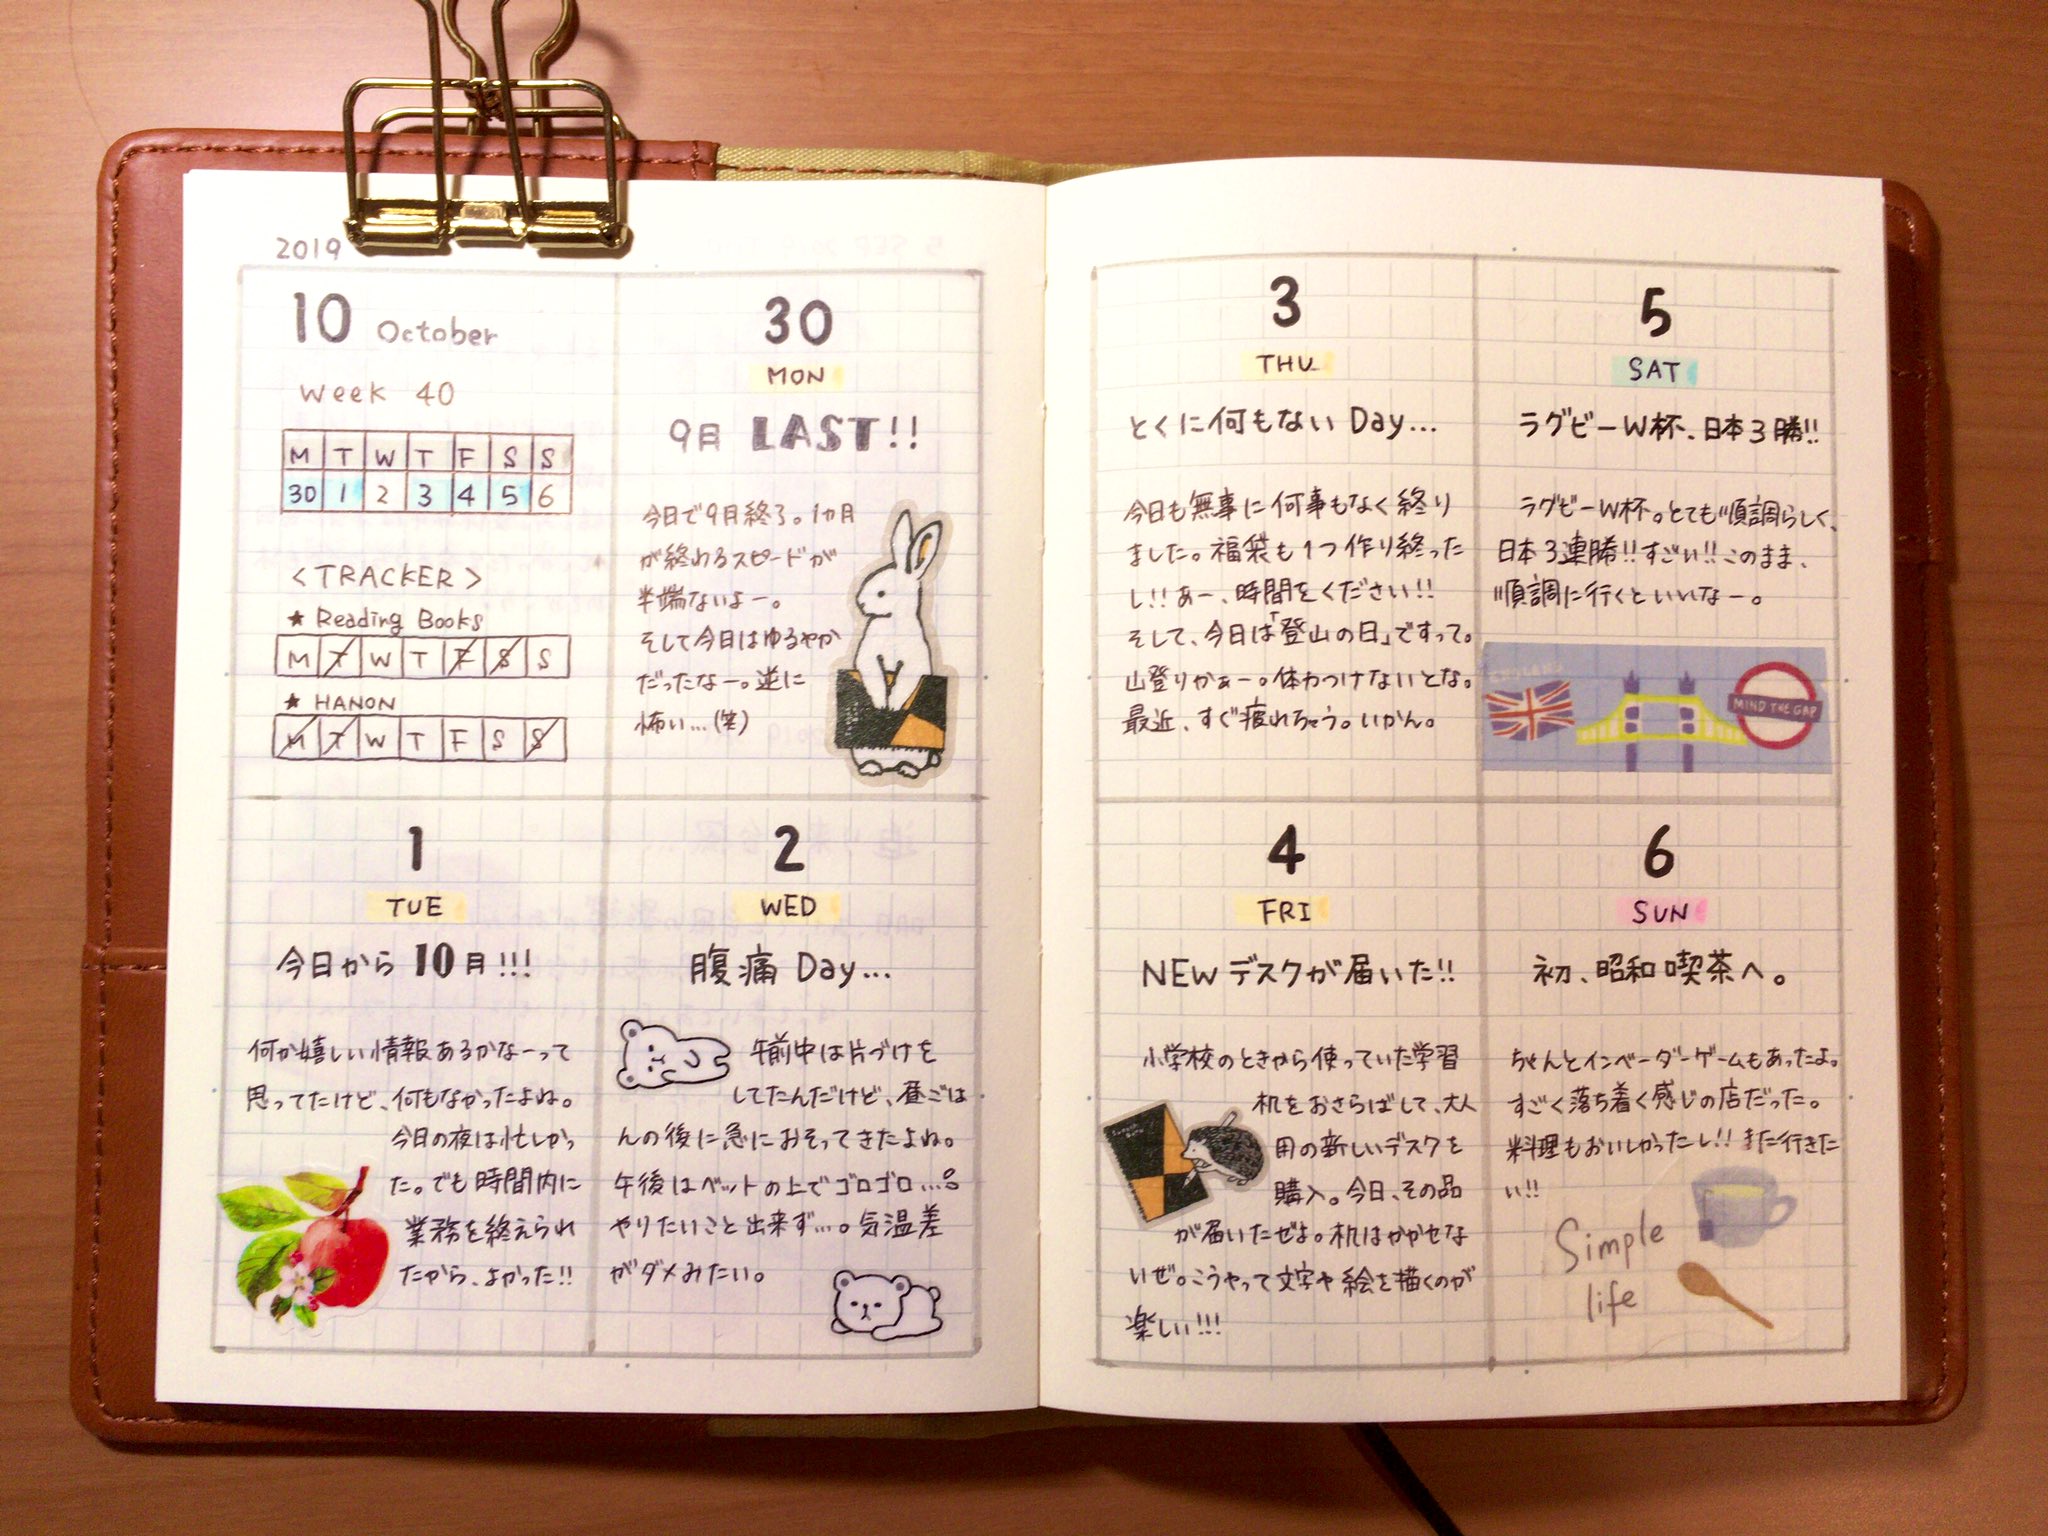 2019
10 October
Week 40
M T W T F S S
30 1 2 3 4 5 6
<TRACKER>
★ Reading Books
M T W T F S S
★ HANON
M T W T F S S
30
MON
9月 LAST!!
今日で9月終了。1カ月
が終わるスピードが
半端ないよー。
そして今日はゆるやか
だったなー。逆に
怖い…(笑)
1
TUE
今日から10月!!!
何か嬉しい情報あるかなーって
思ってたけど、何もなかったよね。
今日の夜は忙しかっ
た。でも時間内に
業務を終えられ
たから、よかった!!
2
WED
腹痛 Day…
午前中は片づけを
してたんだけど、昼ごは
んの後に急におそってきたよね。
午後はベットの上でゴロゴロ…。
やりたいこと出来ず…。気温差
がダメみたい。
3
THU
とくに何もない Day…
今日も無事に何事もなく終り
ました。福袋も1つ作り終った
し!!あー、時間をください!!
そして、今日は「登山の日」ですって。
山登りかぁー。体力つけないとな。
最近、すぐ疲れちゃう。いかん。
4
FRI
NEWデスクが届いた!!
小学校のときから使っていた学習
机をおさらばして、大人
用の新しいデスクを
購入。今日、その品
が届いたぜよ。机はかかせな
いぜ。こうやって文字や絵を描くのが
楽しい!!!
5
SAT
ラグビーW杯、日本3勝!!
ラグビーW杯。とても順調らしく、
日本3連勝!!すごい!!このまま、
順調に行くといいなー。
MIND THE GAP
6
SUN
初、昭和喫茶へ。
ちゃんとインベーダーゲームもあったよ。
すごく落ち着く感じの店だった。
料理もおいしかったし!!また行きた
い!!
Simple
life